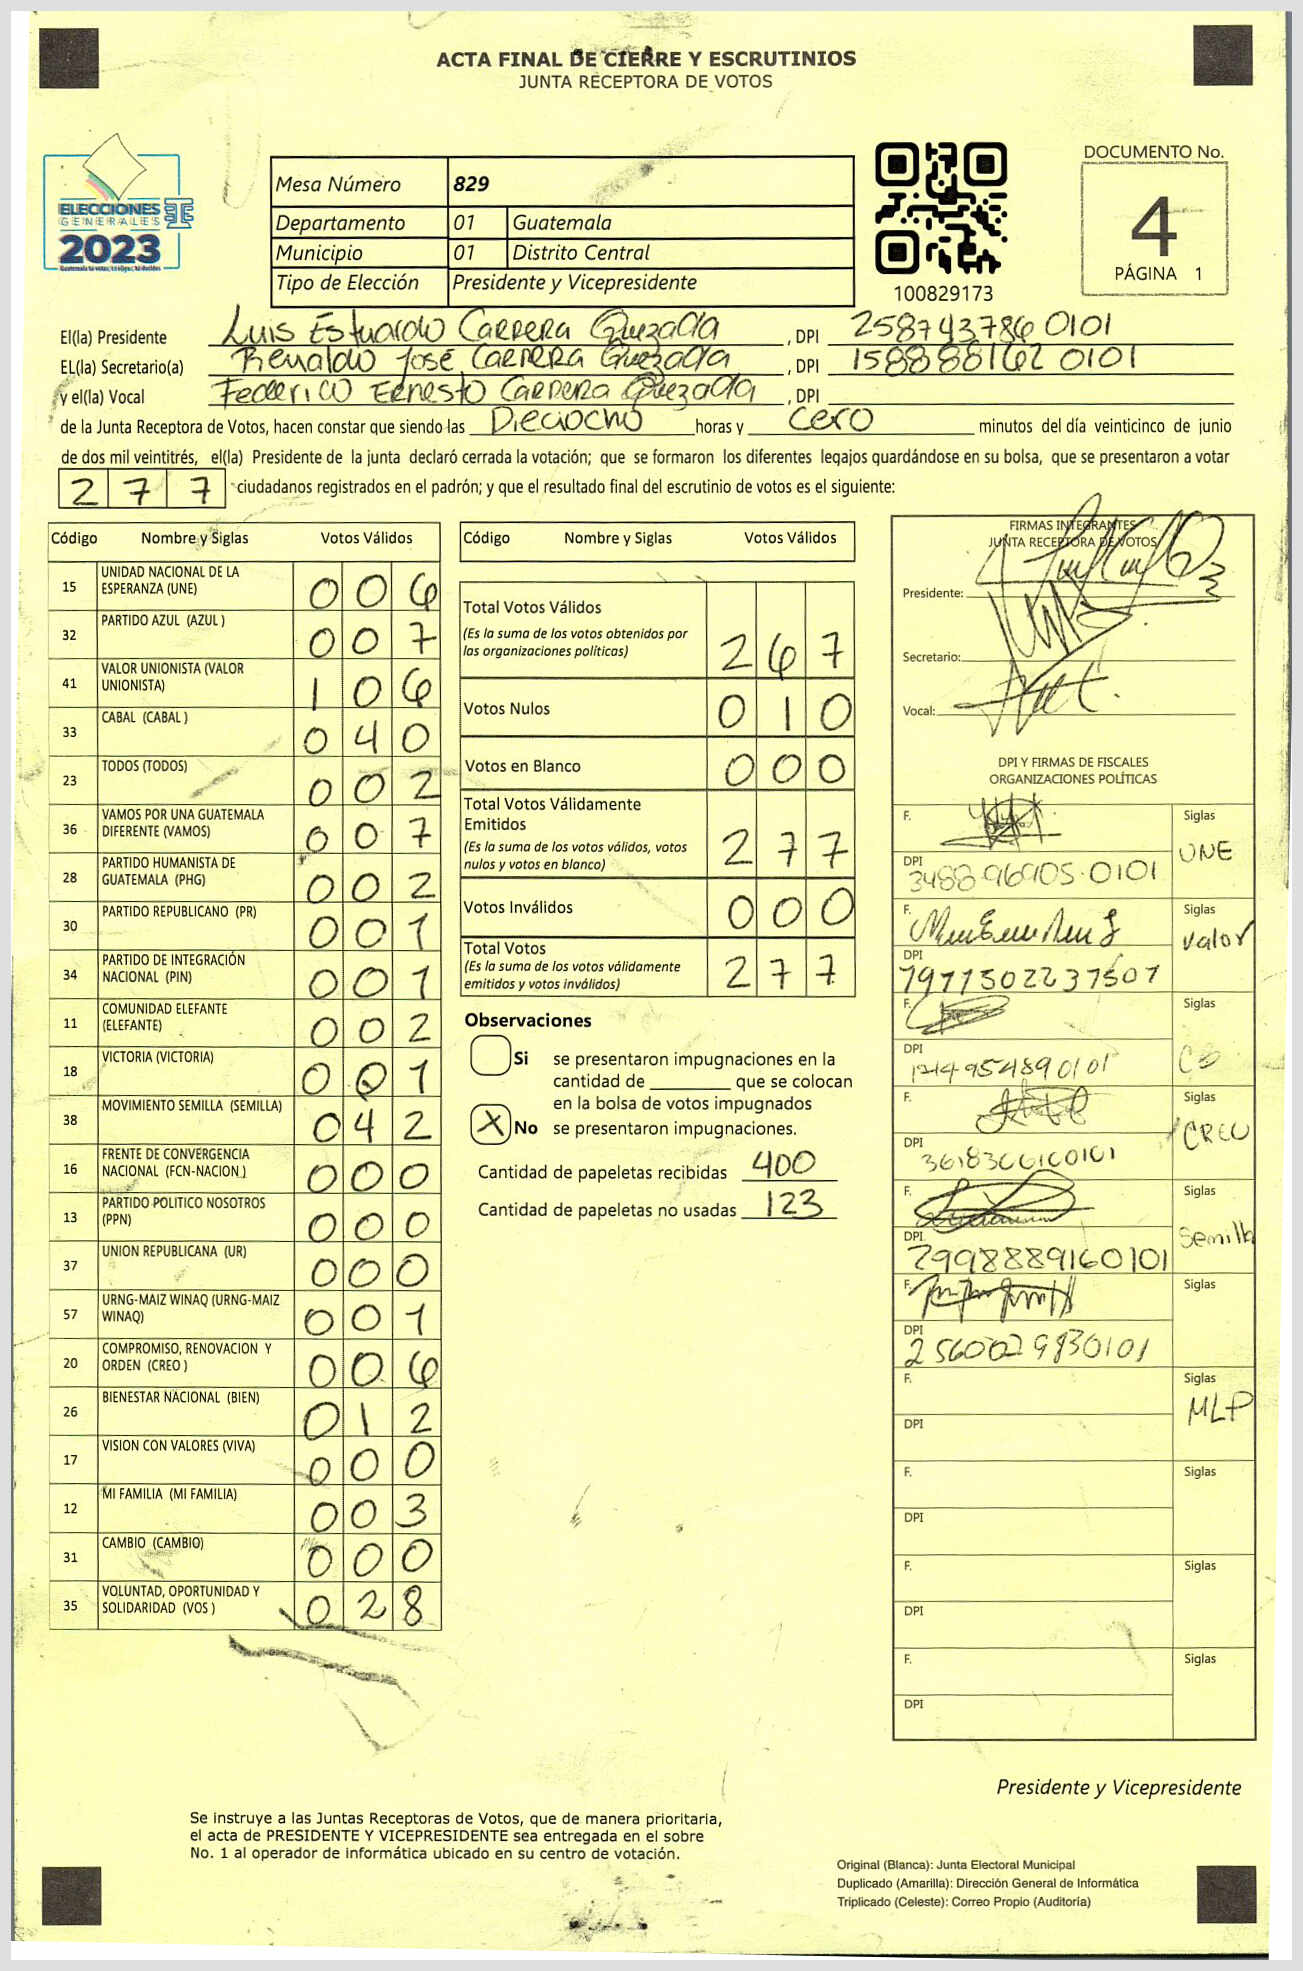 ACTA FINAL DE CIERRE Y ESCRUTINIOS
JUNTA RECEPTORA DE VOTOS
ELECCIONES
GENERALES
2023
Mesa Número 829
Departamento 01 Guatemala
Municipio 01 Distrito Central
Tipo de Elección Presidente y Vicepresidente
100829173
DOCUMENTO No.
4
PÁGINA 1
El(la) Presidente Luis Estuardo Carrera Quezada, DPI 258743786 0101
EL(la) Secretario(a) Renaldo José Carrera Quezada, DPI 158888162 0101
y el(la) Vocal Federico Ernesto Carrera Quezada, DPI
de la Junta Receptora de Votos, hacen constar que siendo las Dieciocho horas y cero minutos del día veinticinco de junio
de dos mil veintitrés, el(la) Presidente de la junta declaró cerrada la votación; que se formaron los diferentes legajos guardándose en su bolsa, que se presentaron a votar
277 ciudadanos registrados en el padrón; y que el resultado final del escrutinio de votos es el siguiente:
Código Nombre y Siglas Votos Válidos
15 UNIDAD NACIONAL DE LA
ESPERANZA (UNE) 006
32 PARTIDO AZUL (AZUL ) 007
41 VALOR UNIONISTA (VALOR
UNIONISTA) 106
33 CABAL (CABAL ) 040
23 TODOS (TODOS) 002
36 VAMOS POR UNA GUATEMALA
DIFERENTE (VAMOS) 007
28 PARTIDO HUMANISTA DE
GUATEMALA (PHG) 002
30 PARTIDO REPUBLICANO (PR) 001
34 PARTIDO DE INTEGRACIÓN
NACIONAL (PIN) 001
11 COMUNIDAD ELEFANTE
(ELEFANTE) 002
18 VICTORIA (VICTORIA) 001
38 MOVIMIENTO SEMILLA (SEMILLA) 042
16 FRENTE DE CONVERGENCIA
NACIONAL (FCN-NACION ) 000
13 PARTIDO POLITICO NOSOTROS
(PPN) 000
37 UNION REPUBLICANA (UR) 000
57 URNG-MAIZ WINAQ (URNG-MAIZ
WINAQ) 001
20 COMPROMISO, RENOVACION Y
ORDEN (CREO ) 006
26 BIENESTAR NACIONAL (BIEN) 012
17 VISION CON VALORES (VIVA) 000
12 MI FAMILIA (MI FAMILIA) 003
31 CAMBIO (CAMBIO) 000
35 VOLUNTAD, OPORTUNIDAD Y
SOLIDARIDAD (VOS ) 028
Código Nombre y Siglas Votos Válidos
Total Votos Válidos
(Es la suma de los votos obtenidos por
las organizaciones políticas) 267
Votos Nulos 010
Votos en Blanco 000
Total Votos Válidamente
Emitidos
(Es la suma de los votos válidos, votos
nulos y votos en blanco) 277
Votos Inválidos 000
Total Votos
(Es la suma de los votos válidamente
emitidos y votos inválidos) 277
Observaciones
Si se presentaron impugnaciones en la
cantidad de que se colocan
en la bolsa de votos impugnados
X No se presentaron impugnaciones.
Cantidad de papeletas recibidas 400
Cantidad de papeletas no usadas 123
FIRMAS INTEGRANTES
JUNTA RECEPTORA DE VOTOS
Presidente:
Secretario:
Vocal:
DPI Y FIRMAS DE FISCALES
ORGANIZACIONES POLÍTICAS
F. Siglas
UNE
DPI
3488 96905 0101
F. Siglas
Valor
DPI
F. Siglas
DPI
F. Siglas
CREO
DPI
F. Siglas
Semilla
DPI
2998889160101
F. Siglas
DPI
2560029830101
F. Siglas
MLP
DPI
F. Siglas
DPI
F. Siglas
DPI
F. Siglas
DPI
Presidente y Vicepresidente
Se instruye a las Juntas Receptoras de Votos, que de manera prioritaria,
el acta de PRESIDENTE Y VICEPRESIDENTE sea entregada en el sobre
No. 1 al operador de informática ubicado en su centro de votación.
Original (Blanca): Junta Electoral Municipal
Duplicado (Amarilla): Dirección General de Informática
Triplicado (Celeste): Correo Propio (Auditoría)